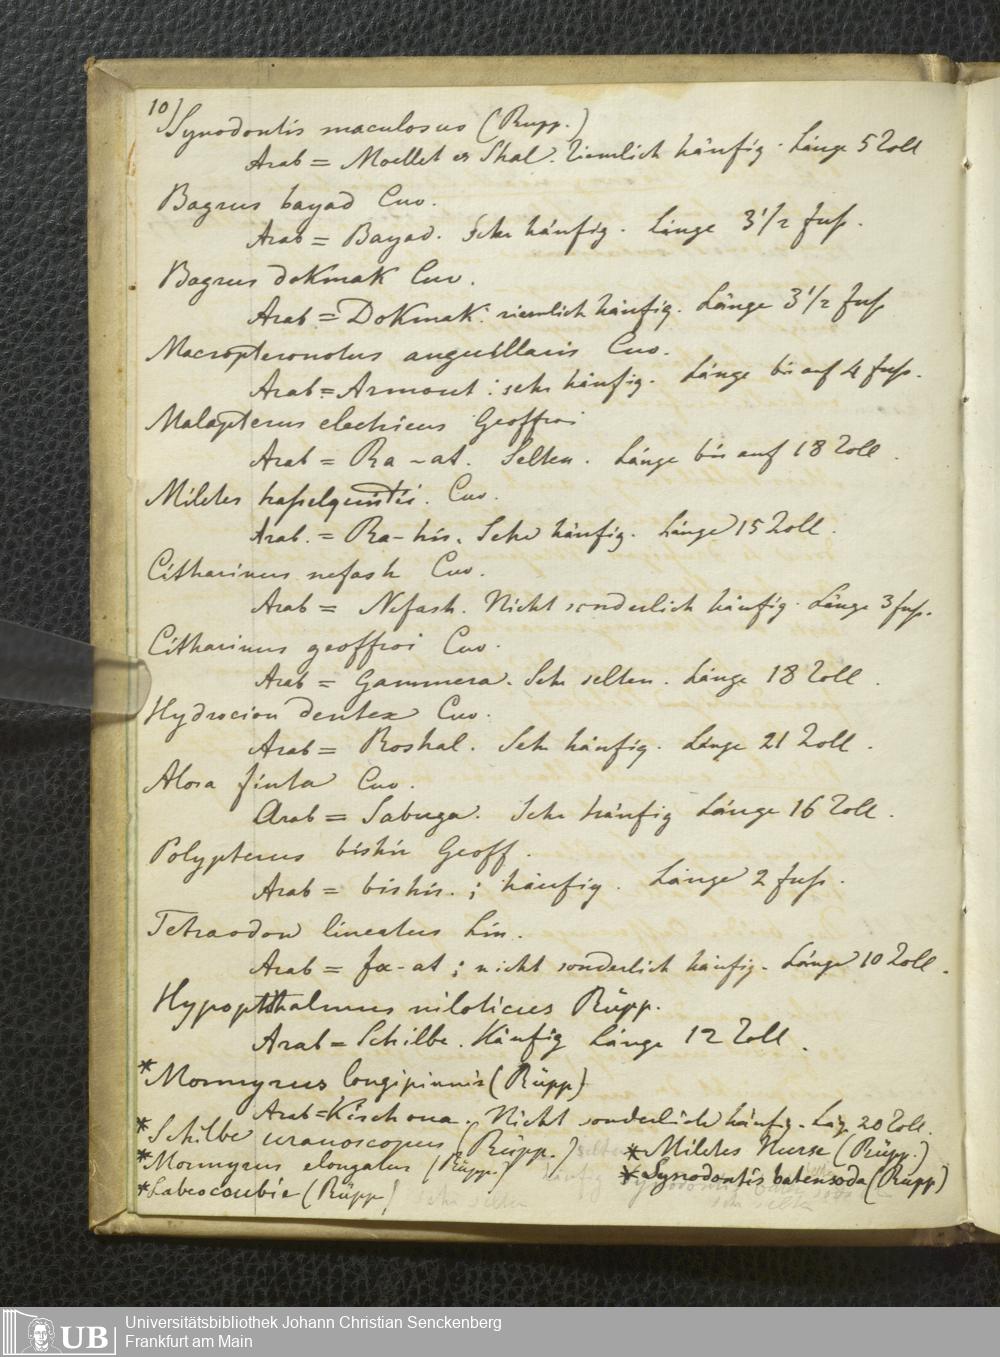 10)
Synodontis maculosus (Rupp.)
Arab = Moellet es Shal. Ziemlich häufig. Länge 5 Zoll
Bagrus bayad Cuv.
Arab = Bayad. Sehr häufig. Länge 3 1/2 fuß.
Bagrus doKmaK Cuv.
Arab = DoKmaK. ziemlich häufig. Länge 3 1/2 fuß
Macropteronotus anguillaris Cuv.
Arab = Armout : sehr häufig. Länge bis auf 4 fuß.
Malapterus electricus Geoffroi
Arab = Ra-at. Selten. Länge bis auf 18 Zoll.
Miletes haßelquistii. Cuv.
Arab. = Ra-his. Sehr häufig. Länge 15 Zoll.
Citharinus nefash Cuv.
Arab = Nefash. Nicht sonderlich häufig. Länge 3 fuß.
Citharinus geoffroi Cuv.
Arab = Gammera. Sehr selten. Länge 18 Zoll.
Hydrocion dentex Cuv.
Arab = Roshal. Sehr häufig. Länge 21 Zoll.
Alosa finta Cuv.
Arab = Sabuga. Sehr häufig Länge 16 Zoll.
Polypterus bishir Geoff.
Arab = bishir. ; häufig. Länge 2 fuß.
Tetraodon lineatus Lin.
Arab = fa-at ; nicht sonderlich häufig. Länge 10 Zoll.
Hypopthalmus niloticus Rüpp.
Arab = Schilbe. Häufig Länge 12 Zoll.
*Mormyrus longipinnis (Rüpp)
Arab = Kischoua. Nicht sonderlich häufig. Läg. 20 Zoll.
*Schilbe uranoscopus (Rüpp.) *Miletes Nurse (Rüpp.)
*Mormyrus elongatus (Rüpp.) *Synodontis batensoda (Rüpp)
*Labeo coubie (Rüpp)
sehr selten
UB
Universitätsbibliothek Johann Christian Senckenberg
Frankfurt am Main